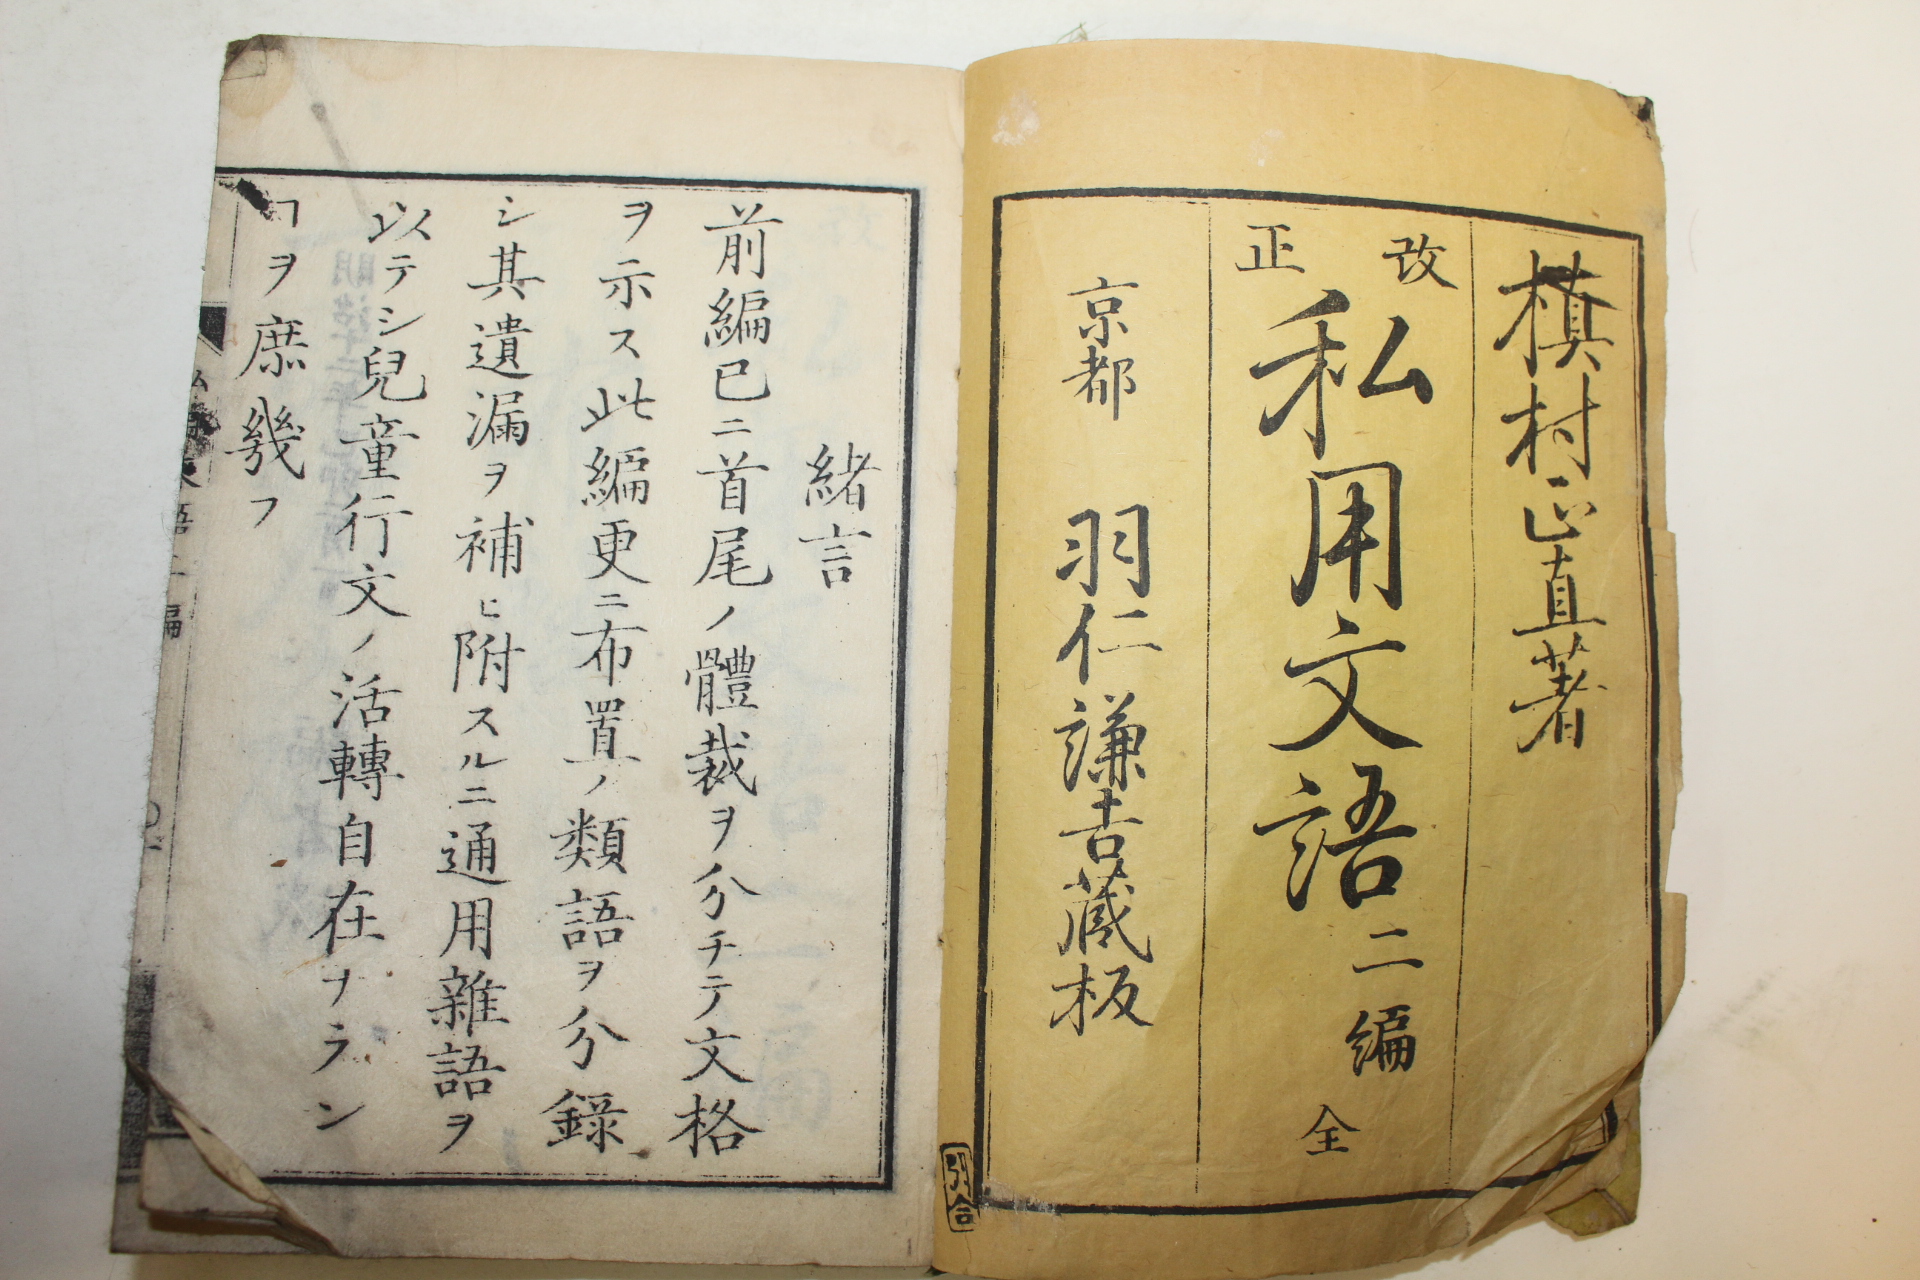 槙村正直著
改正
私用文語二編 全
京都 羽仁謙吉藏板
引合
緒言
前編已ニ首尾ノ體裁ヲ分チテ文格
ヲ示ス此編更ニ布置ノ類語ヲ分録
シ其遺漏ヲ補ヒ附スルニ通用雜語ヲ
以テシ兒童行文ノ活轉自在ナラン
ヿヲ庶幾フ